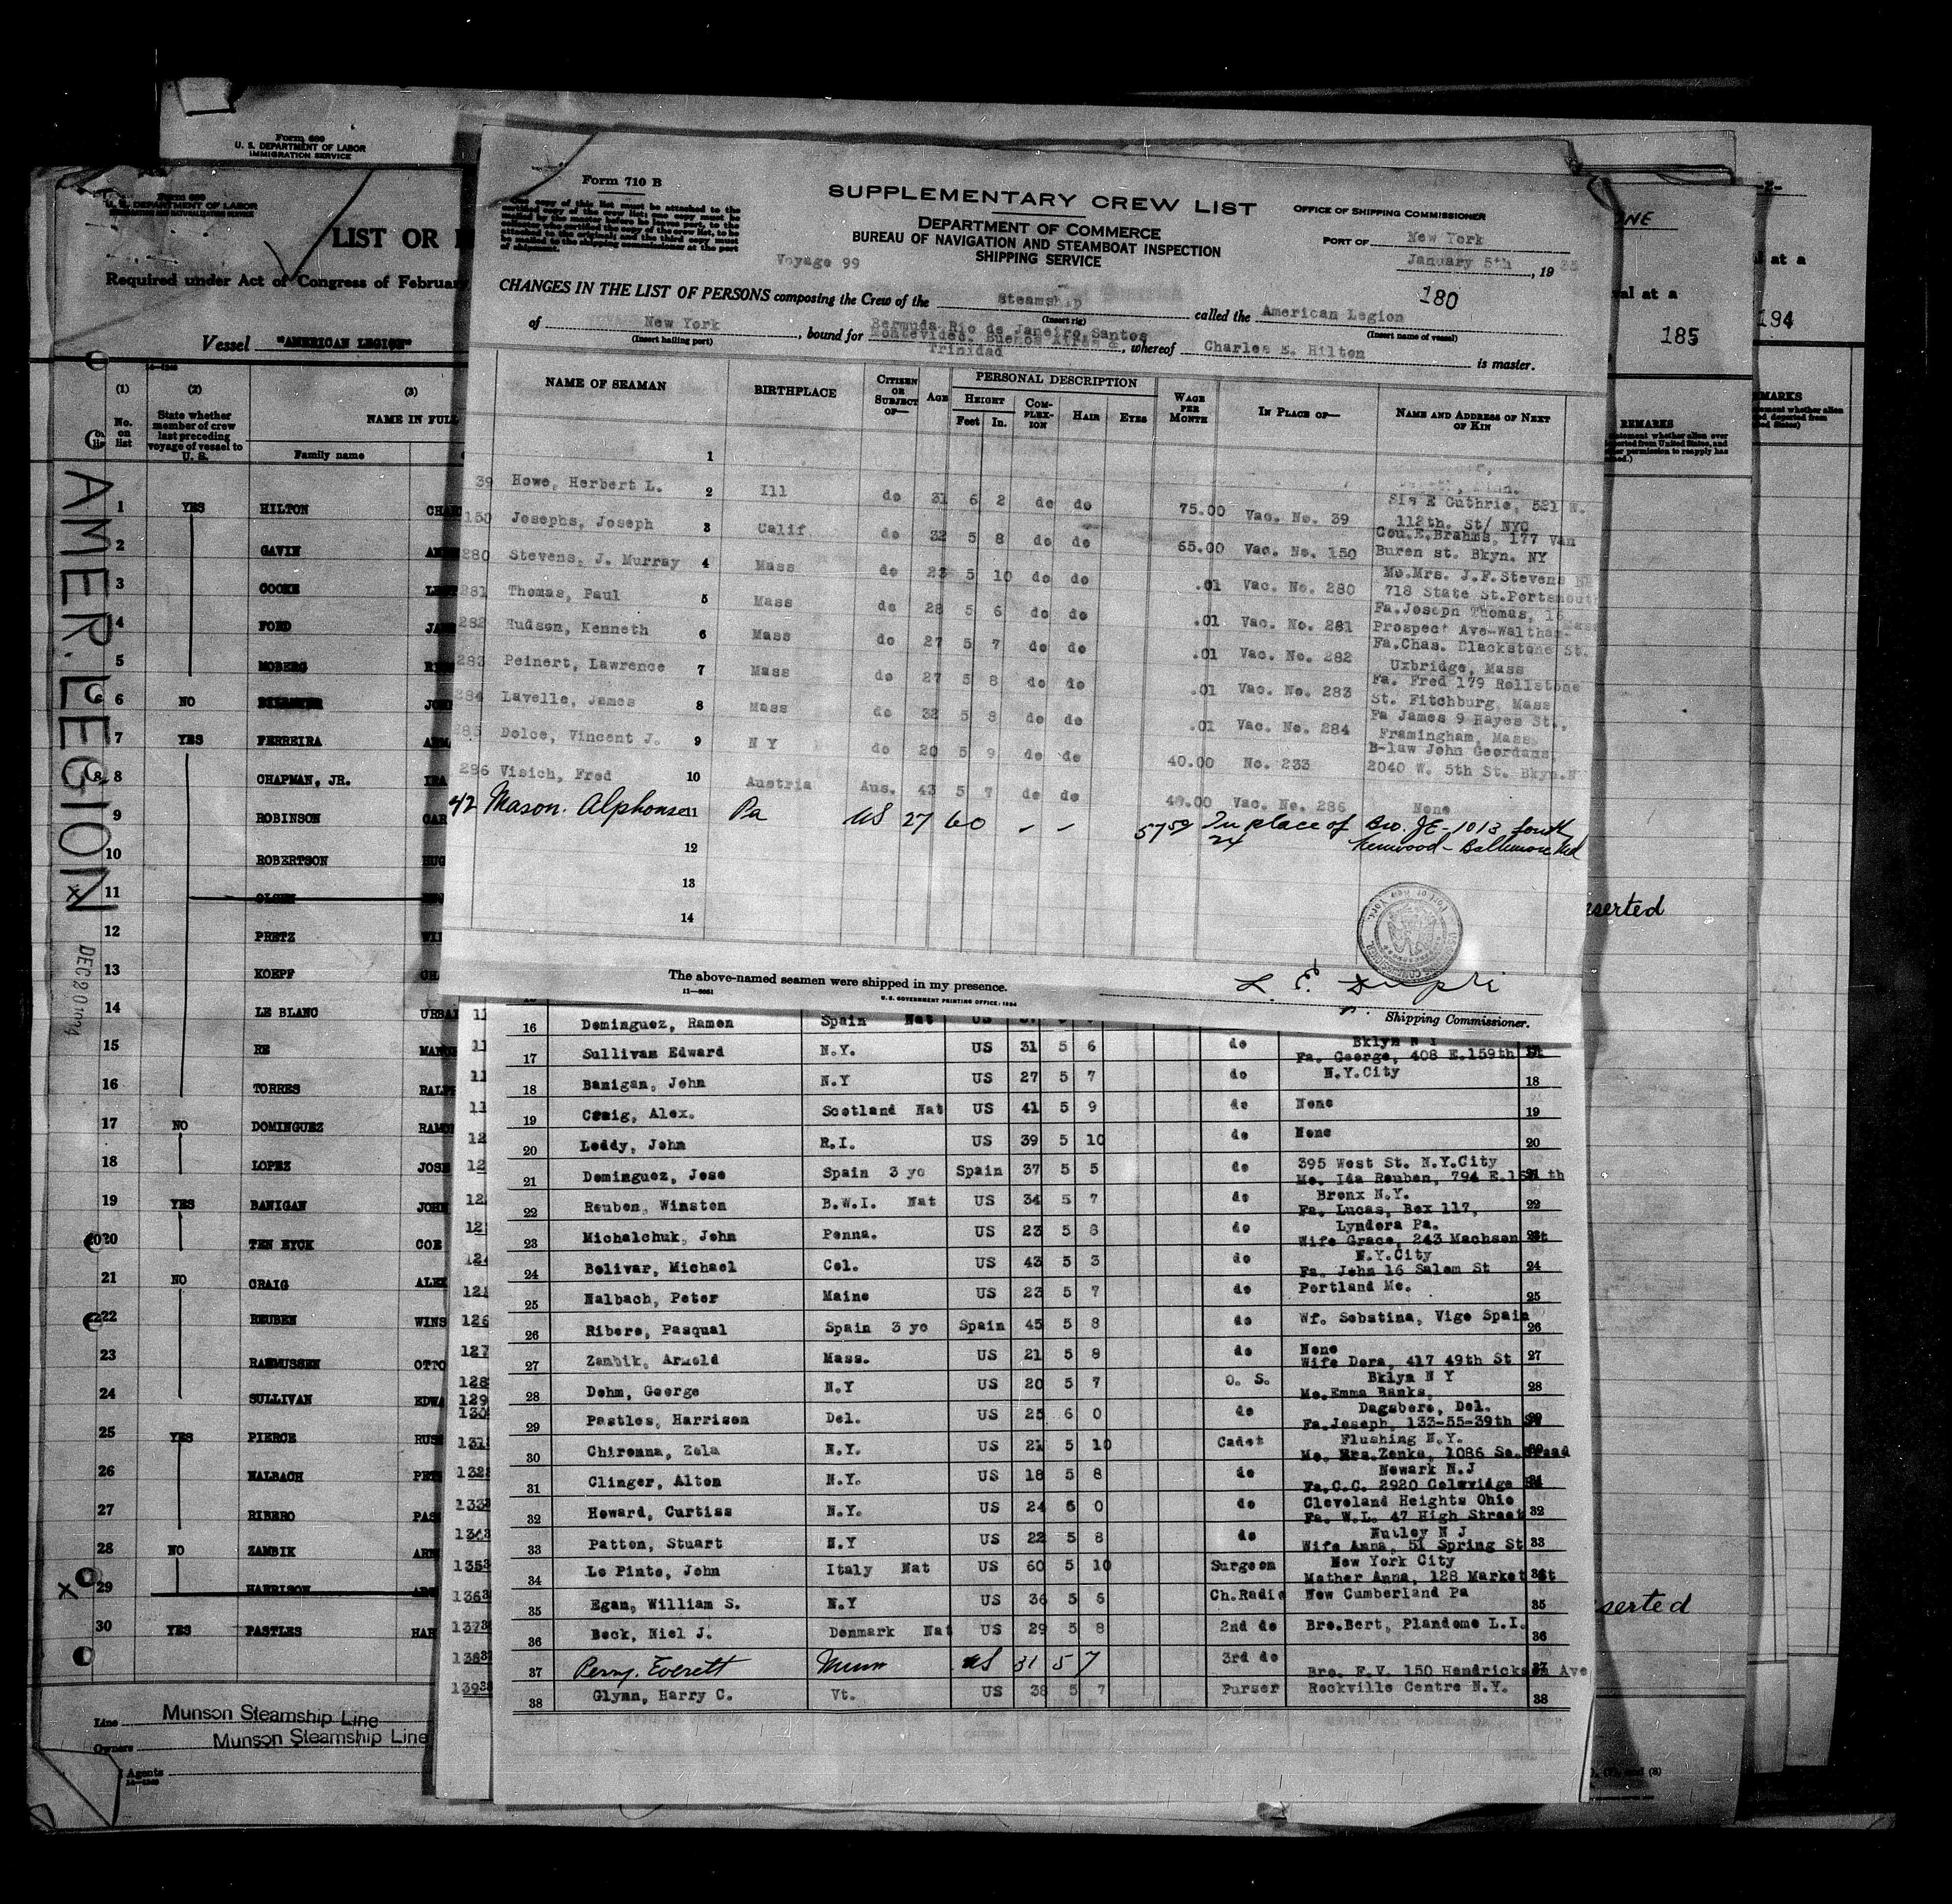 Form 680
U. S. DEPARTMENT OF LABOR
IMMIGRATION SERVICE
U. S. DEPARTMENT OF LABOR
LIST OR
Required under Act of Congress of February
Vessel "AMERICAN LEGION"
(1) (2) (3)
No. on list
State whether member of crew last preceding voyage of vessel to U. S.
NAME IN FULL
Family name
AMER. LEGION
1 YES HILTON
2 GAVIN
3 COOKE
4 FORD
5 MOBERG
6 NO
7 YES FERREIRA
8 CHAPMAN, JR. IRA
9 ROBINSON
10 ROBERTSON
x 11 OLSEN
12 PRETZ
13 KOEPF
14 LE BLANC
15 RE
16 TORRES
17 NO DOMINGUEZ
18 LOPEZ JOSE
19 YES BANIGAN JOHN
20 TEN EYCK
21 NO CRAIG
22 REUBEN WINS
23 RASMUSSEN OTTO
24 SULLIVAN EDWA
25 YES PIERCE
26 NALBACH
27 RIBERO
28 NO ZAMBIK
x 29 HARRISON
30 YES PASTLES HAR
Line Munson Steamship Line
Owners Munson Steamship Line
Agents
Form 710 B
One copy of this list must be attached to the
SUPPLEMENTARY CREW LIST
DEPARTMENT OF COMMERCE
BUREAU OF NAVIGATION AND STEAMBOAT INSPECTION
SHIPPING SERVICE
OFFICE OF SHIPPING COMMISSIONER
PORT OF New York
January 5th, 1935
Voyage 99
180
CHANGES IN THE LIST OF PERSONS composing the Crew of the Steamship called the American Legion
(Insert rig) (Insert name of vessel)
of New York, bound for Bermuda, Rio de Janeiro, Santos Montevideo, Buenos Aires & Trinidad, whereof Charles E. Hilton is master.
(Insert hailing port)
NAME OF SEAMAN BIRTHPLACE CITIZEN OR SUBJECT OF— AGE PERSONAL DESCRIPTION WAGE PER MONTH IN PLACE OF— NAME AND ADDRESS OF NEXT OF KIN
HEIGHT Feet In. COMPLEXION HAIR EYES
1
39 Howe, Herbert L. 2 Ill do 31 6 2 do do 75.00 Vac. No. 39 Sis E Guthrie, 521 W. 112th. St/ NYC
150 Josephs, Joseph 3 Calif do 32 5 8 do do 65.00 Vac. No. 150 Cou.E.Brahms, 177 Van Buren st. Bkyn. NY
280 Stevens, J. Murray 4 Mass do 23 5 10 do do .01 Vac. No. 280 Mo.Mrs. J.F.Stevens 718 State St.Portsmouth
281 Thomas, Paul 5 Mass do 28 5 6 do do .01 Vac. No. 281 Fa.Joseph Thomas, 16 Prospect Ave-Waltham- Mass
282 Hudson, Kenneth 6 Mass do 27 5 7 do do .01 Vac. No. 282 Fa.Chas. Blackstone St. Uxbridge, Mass
283 Peinert, Lawrence 7 Mass do 27 5 8 do do .01 Vac. No. 283 Fa. Fred 179 Rollstone St. Fitchburg, Mass
284 Lavelle, James 8 Mass do 32 5 8 do do .01 Vac. No. 284 Fa James 9 Hayes St., Framingham, Mass
285 Dolce, Vincent J. 9 N Y do 20 5 9 do do 40.00 No. 233 B-law John Geordans, 2040 W. 5th St. Bkyn.N
286 Visich, Fred 10 Austria Aus. 43 5 7 do do 40.00 Vac. No. 286 None
42 Mason. Alphonse 11 Pa US 27 6 0 – – 57 50 In place of 24 Bro. JE - 1013 South Kenwood - Baltimore Md
12
13
14
The above-named seamen were shipped in my presence.
U. S. GOVERNMENT PRINTING OFFICE: 1934
Shipping Commissioner.
16 Dominguez, Ramon Spain Nat US
17 Sullivan Edward N.Y. US 31 5 6 do Bklyn N Y Fa. George, 408 E.159th St
18 Banigan, John N.Y US 27 5 7 do N.Y.City 18
19 Craig, Alex. Scotland Nat US 41 5 9 do None 19
20 Leddy, John R.I. US 39 5 10 do None 20
21 Dominguez, Jose Spain 3 yo Spain 37 5 5 do 395 West St. N.Y.City Mo. Ida Reuben, 794 E.
22 Reuben, Winston B.W.I. Nat US 34 5 7 do Bronx N.Y. Fa. Lucas, Box 117, 22
23 Michalchuk, John Penna. US 23 5 8 do Lyndora Pa. Wife Grace, 243
24 Bolivar, Michael Col. US 43 5 3 do N.Y.City Fa. John 16 Salem St 24
25 Nalbach, Peter Maine US 23 5 7 do Portland Me. 25
26 Ribero, Pasqual Spain 3 yo Spain 45 5 8 do Wf. Sebstina, Vigo Spain 26
27 Zambik, Arnold Mass. US 21 5 8 do None Wife Dora, 417 49th St 27
28 Dohm, George N.Y US 20 5 7 O. S. Bklyn N Y Mo.Emma Banks, 28
29 Pastles, Harrison Del. US 25 6 0 do Dagsboro, Del. Fa.Joseph, 133-55-39th
30 Chirenna, Zola N.Y. US 21 5 10 Cadet Flushing N.Y. Mo. Mrs.Zenka, 1086 So.
31 Clinger, Alton N.Y. US 18 5 8 do Newark N.J Fa.C.C. 2920 Coleridge
32 Howard, Curtiss N.Y. US 24 6 0 do Cleveland Heights Ohio Fa. W.L. 47 High Street 32
33 Patton, Stuart N.Y US 22 5 8 do Nutley N J Wife Anna, 51 Spring St 33
34 Lo Pinto, John Italy Nat US 60 5 10 Surgeon New York City Mother Anna, 128 Market St
35 Egan, William S. N.Y US 36 5 6 Ch.Radio New Cumberland Pa 35
36 Beck, Niel J. Denmark Nat US 29 5 8 2nd do Bro.Bert, Plandome L.I. 36
37 Perry. Everett Minn US 31 5 7 3rd do Bro. F.V. 150 Hendrickson Ave
38 Glynn, Harry C. Vt. US 38 5 7 Purser Rockville Centre N.Y. 38
185
194
REMARKS